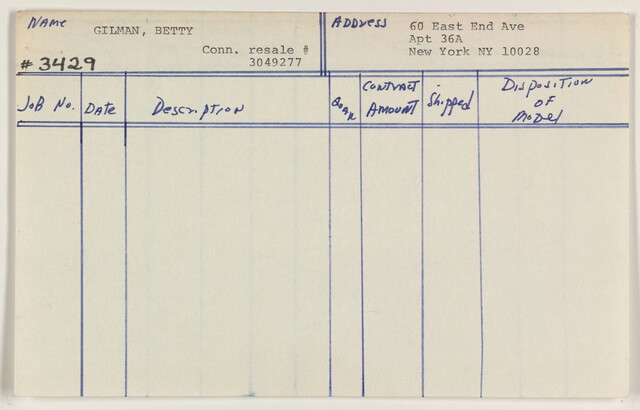 NAME GILMAN, BETTY
Conn. resale #
#3429 3049277
ADDRESS 60 East End Ave
Apt 36A
New York NY 10028
JOB No.
DATE
Description
QUAN
CONTRACT
AMOUNT
Shipped
Disposition
OF
Model